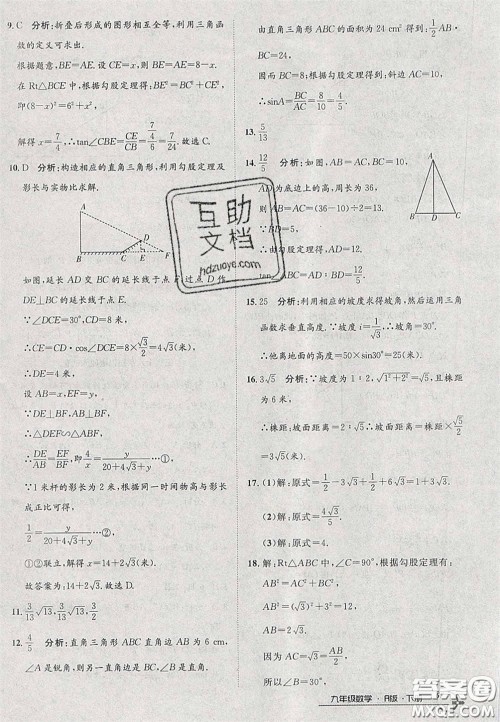 9. C 分析:折叠后形成的图形相互全等,利用三角函
数的定义可求出.
根据题意,BE=AE.设BE=x,则CE=8-x.
在Rt△BCE中,根据勾股定理得:BE²=BC²+EC²,
即(8-x)²=6²+x²,
解得x=7/4,∴tan∠CBE=CE/CB=(7/4)/6=7/24.故选C.
10. D 分析:构造相应的直角三角形,利用勾股定理及
影长与实物比求解.
A
D
B C E F
如图,延长AD交BC的延长线于点F,过点D作
DE⊥BC的延长线于点E.
∵∠DCE=30°,CD=8米,
∴CE=CD·cos∠DCE=8×√3/2=4√3(米),
∴DE=4米,
设AB=x,EF=y,
∵DE⊥BF,AB⊥BF,
∴△DEF∽△ABF,
∴DE/AB=EF/BF,即4/x=y/(20+4√3+y)…①,
∵1米杆的影长为2米,根据同一时间物高与影长
成正比可得,
1/2=x/(20+4√3+y)…②,
①②联立,解得x=14+2√3(米).
故答案为:14+2√3.故选D.
11. 3/13 √13, 2/13 √13
12. 4/5 分析:直角三角形ABC直角边AB为6 cm,
∠A是锐角,则∠B是直角,
由直角三角形ABC的面积得:S=1/2 AB·
BC=24,
∴BC=8,根据勾股定理得:斜边AC=10,
∴sinA=BC/AC=8/10=4/5.
13. 5/13
14. 12/5 分析:如图,AB=AC,BC=10,
AD为底边上的高,周长为36,
则AB=AC=(36-10)÷2=13.
∴BD=5,
由勾股定理得AD=12.
tan∠ABC=AD/BD=12/5.
A
B D C
15. 25 分析:利用相应的坡度求得坡角,然后运用三角
函数求垂直高度.
∵坡度i=1∶√3,∴坡角=30°.
∴他离地面的高度=50×sin30°=25(米).
16. 3√5 分析:∵坡度为1∶2,√(1²+2²)=√5,且株距
为6米,
∴株距∶坡面距离=2∶√5.
∴坡面距离=株距×√5/2=3√5(米).
17. (1)解:原式=1/2-3√3+1/2+6√3=1+3√3.
(2)解:原式=4√3/5.
(3)解:原式=2.
18. 解:Rt△ABC中,∠C=90°,根据勾股定理有:
AB²=AC²+BC²
AB=2√2
所以AC=BC
所以∠A=∠B
所以∠A=45°.
互助
文档
hdzuoye.com
九年级数学·R版·下册
答案圈
MXQE.COM